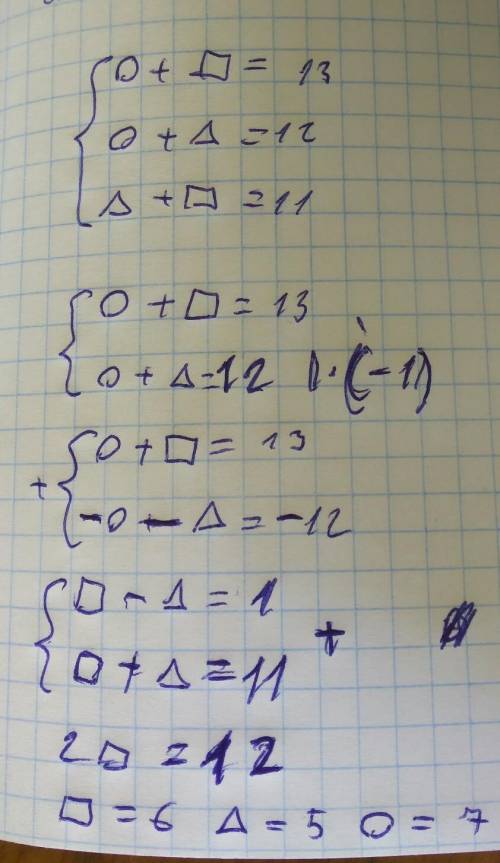 ○ + □ = 13
○ + △ = 12
△ + □ = 11
○ + □ = 13
○ + △ = 12 |·(-1)
+ ○ + □ = 13
-○ - △ = -12
□ - △ = 1
□ + △ = 11 +
2□ = 12
□ = 6 △ = 5 ○ = 7